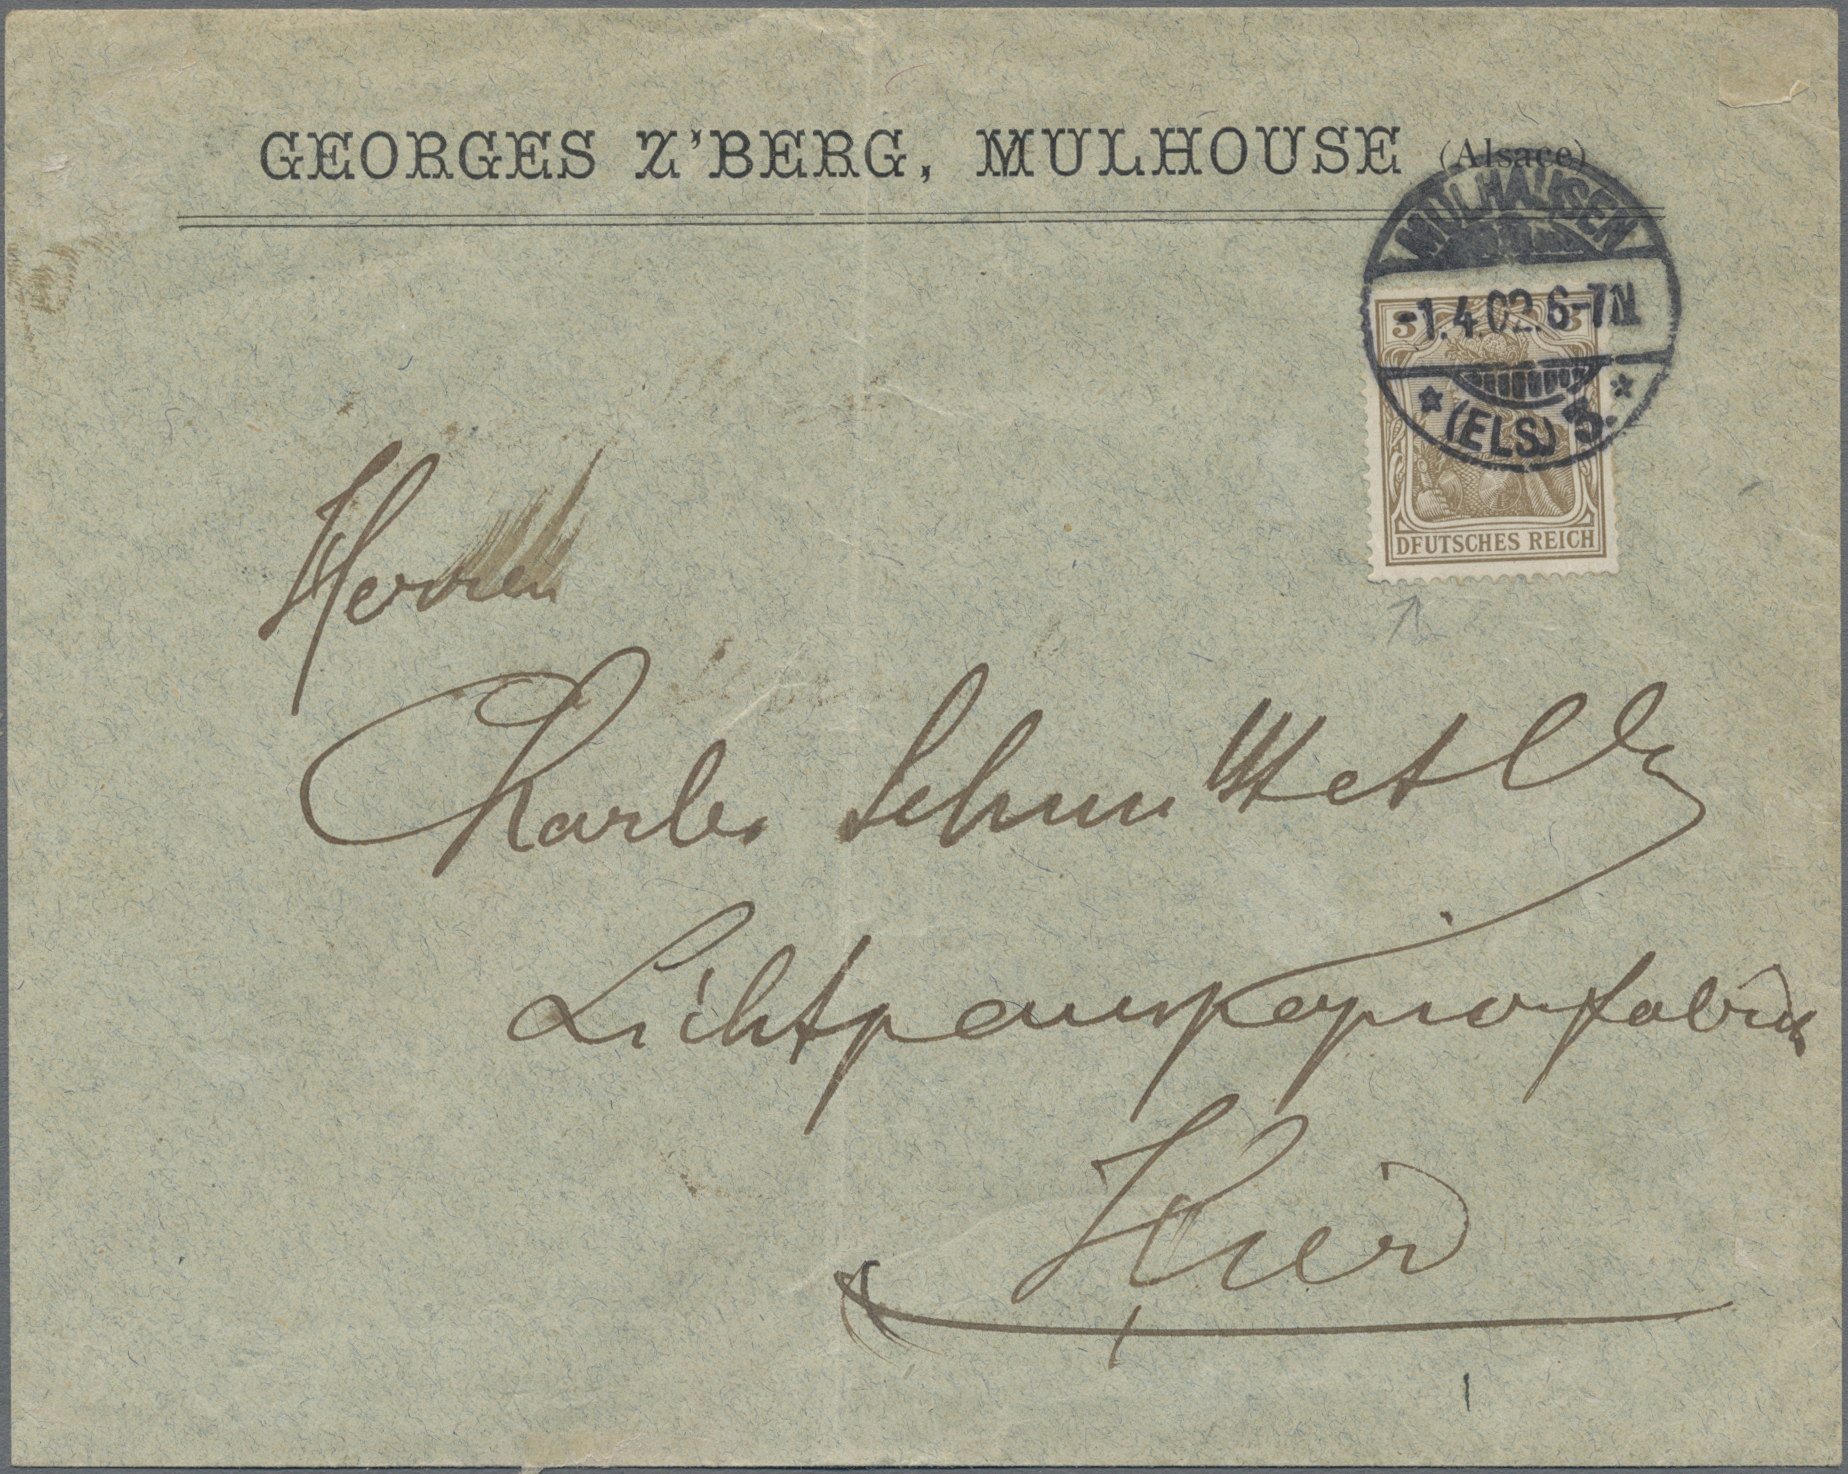 GEORGES Z'BERG, MULHOUSE (Alsace)
MÜLHAUSEN
-1.4.02.6-7N
* (ELS.) 3. *
3 3
DFUTSCHES REICH
Herren
Charles Schmitt et Cie
Lichtpauspapierfabrik
Hier